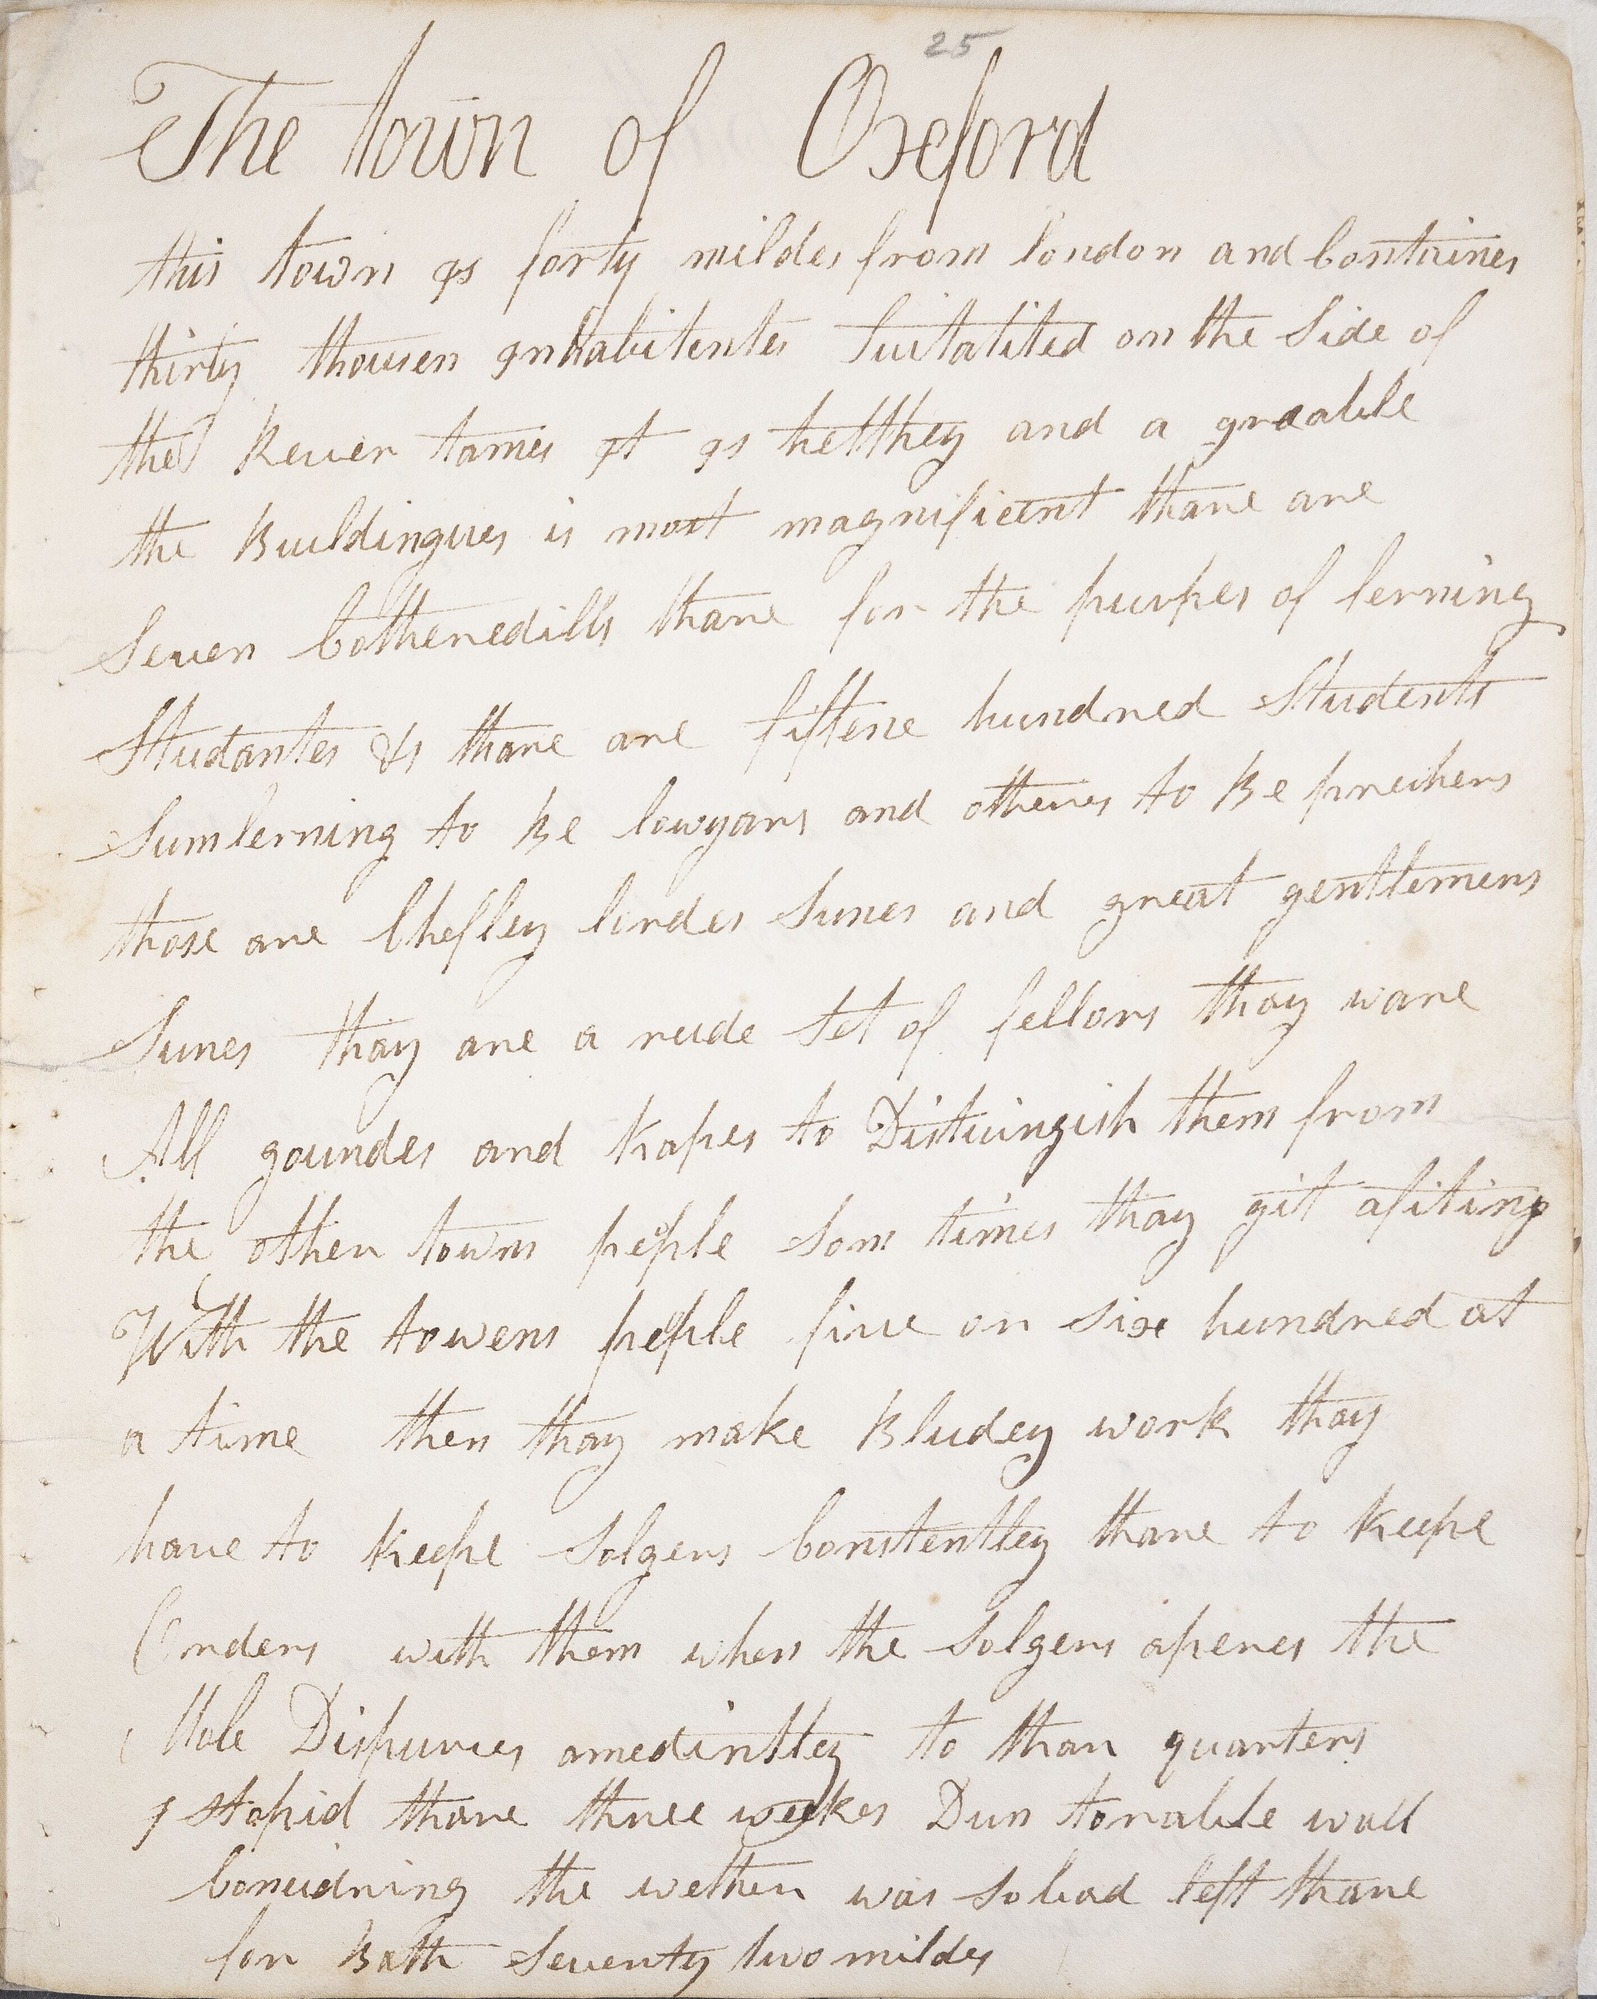 25
The town of Oxford
this town is forty mildes from london and Containes
thirty thousen inhabitentes Suitatited on the Side of
the Rever tames it is helthey and a greable
the Buildingues is most magnificent thare are
Seven Cotheredills thare for the purpes of lerning
Studantes &s thare are fiftene hundred Students
Sum lerning to Be lowyars and otheres to Be preihers
those are Chefley lordes Sunes and great gentlemens
Sunes thay are a rude Set of fellors thay ware
All goundes and kapes to Distuingish them from
the other towns peple som times thay git afiting
With the towens peple five or six hundred at
a time then thay make Bludey work thay
have to keepe Solgers Constentley thare to keepe
Orders with them when the Solgers aperes the
Mob Dispurces amedintley to thar quarters
I stopid thare three weekes Dun torable well
Considring the wether was so bad left thare
for Bath Seventy two mildes